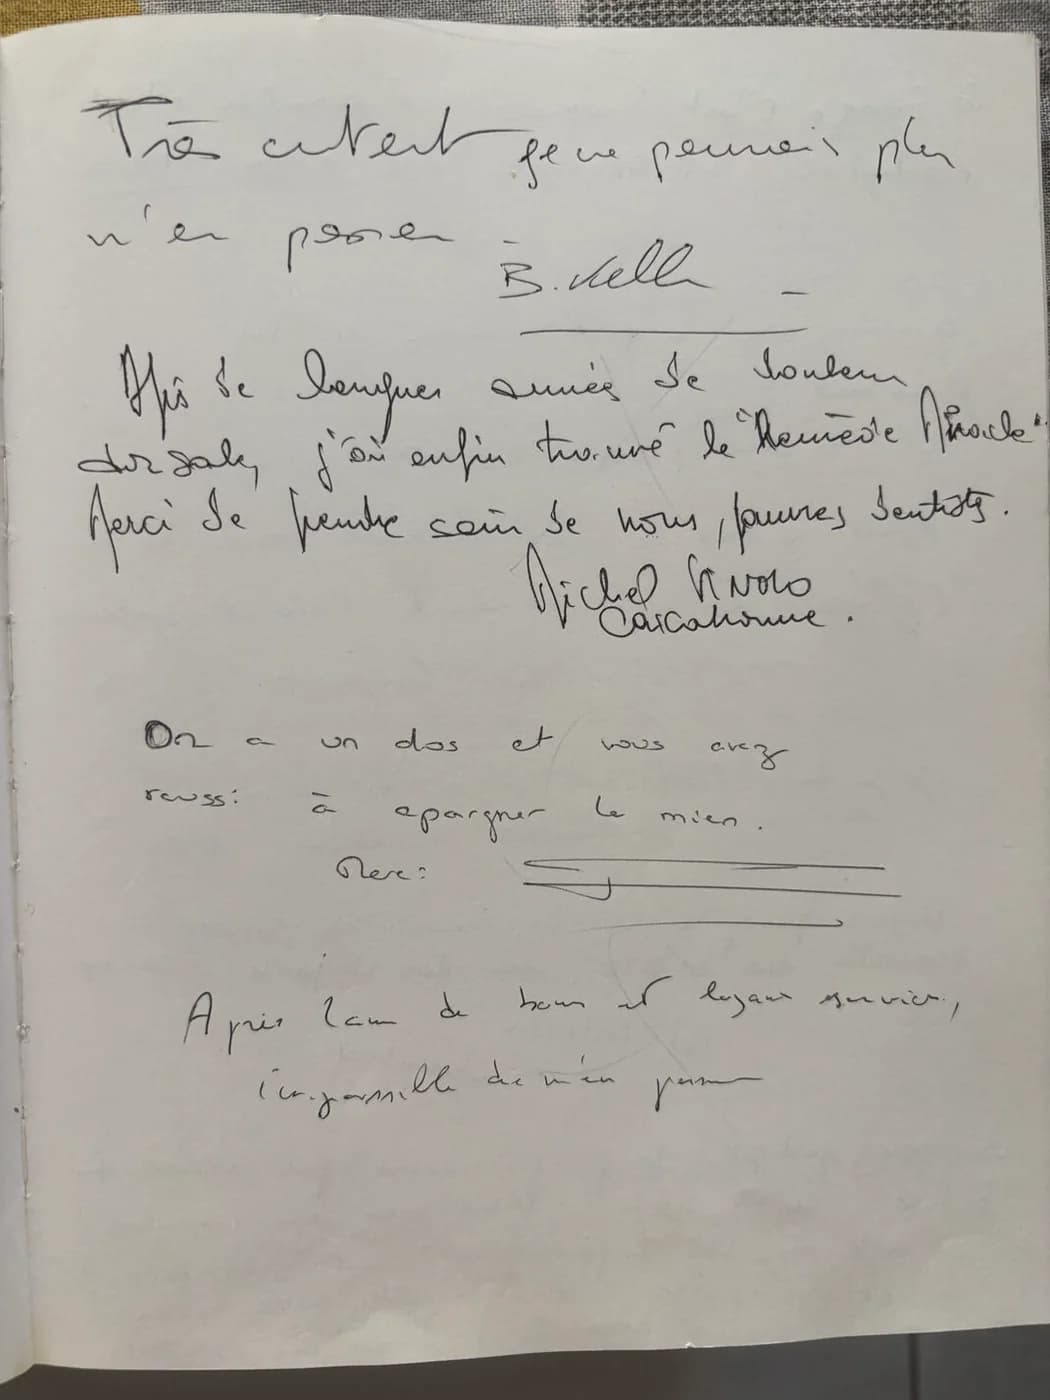 Très content je ne pourrais plus
m'en passer
B.
Après de longues années de douleurs
dorsales, j'ai enfin trouvé le "Remède Miracle"
Merci de prendre soin de nous, pauvres dentistes.
Michel
Carcassonne.
On a un dos et vous avez
reussi à epargner le mien.
Merci
Après 1 an de bons et loyaux services,
impossible de m'en passer